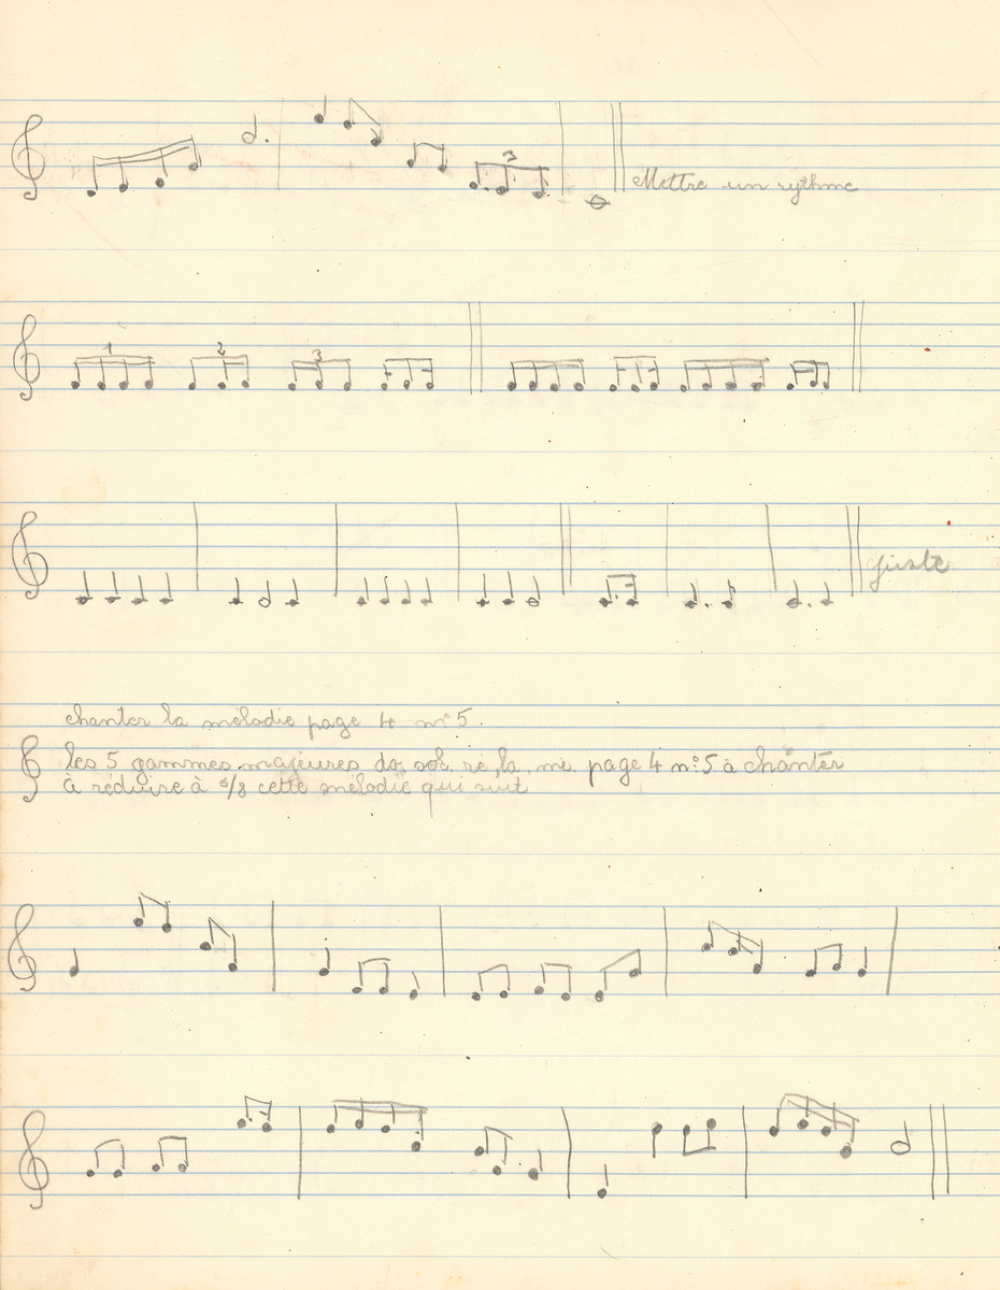 3
Mettre un rythme
1 2 3
juste
chanter la mélodie page 4 n° 5.
les 5 gammes majeures do, sol, ré, la, mi, page 4 n° 5 à chanter
à réduire à 6/8 cette mélodie qui suit